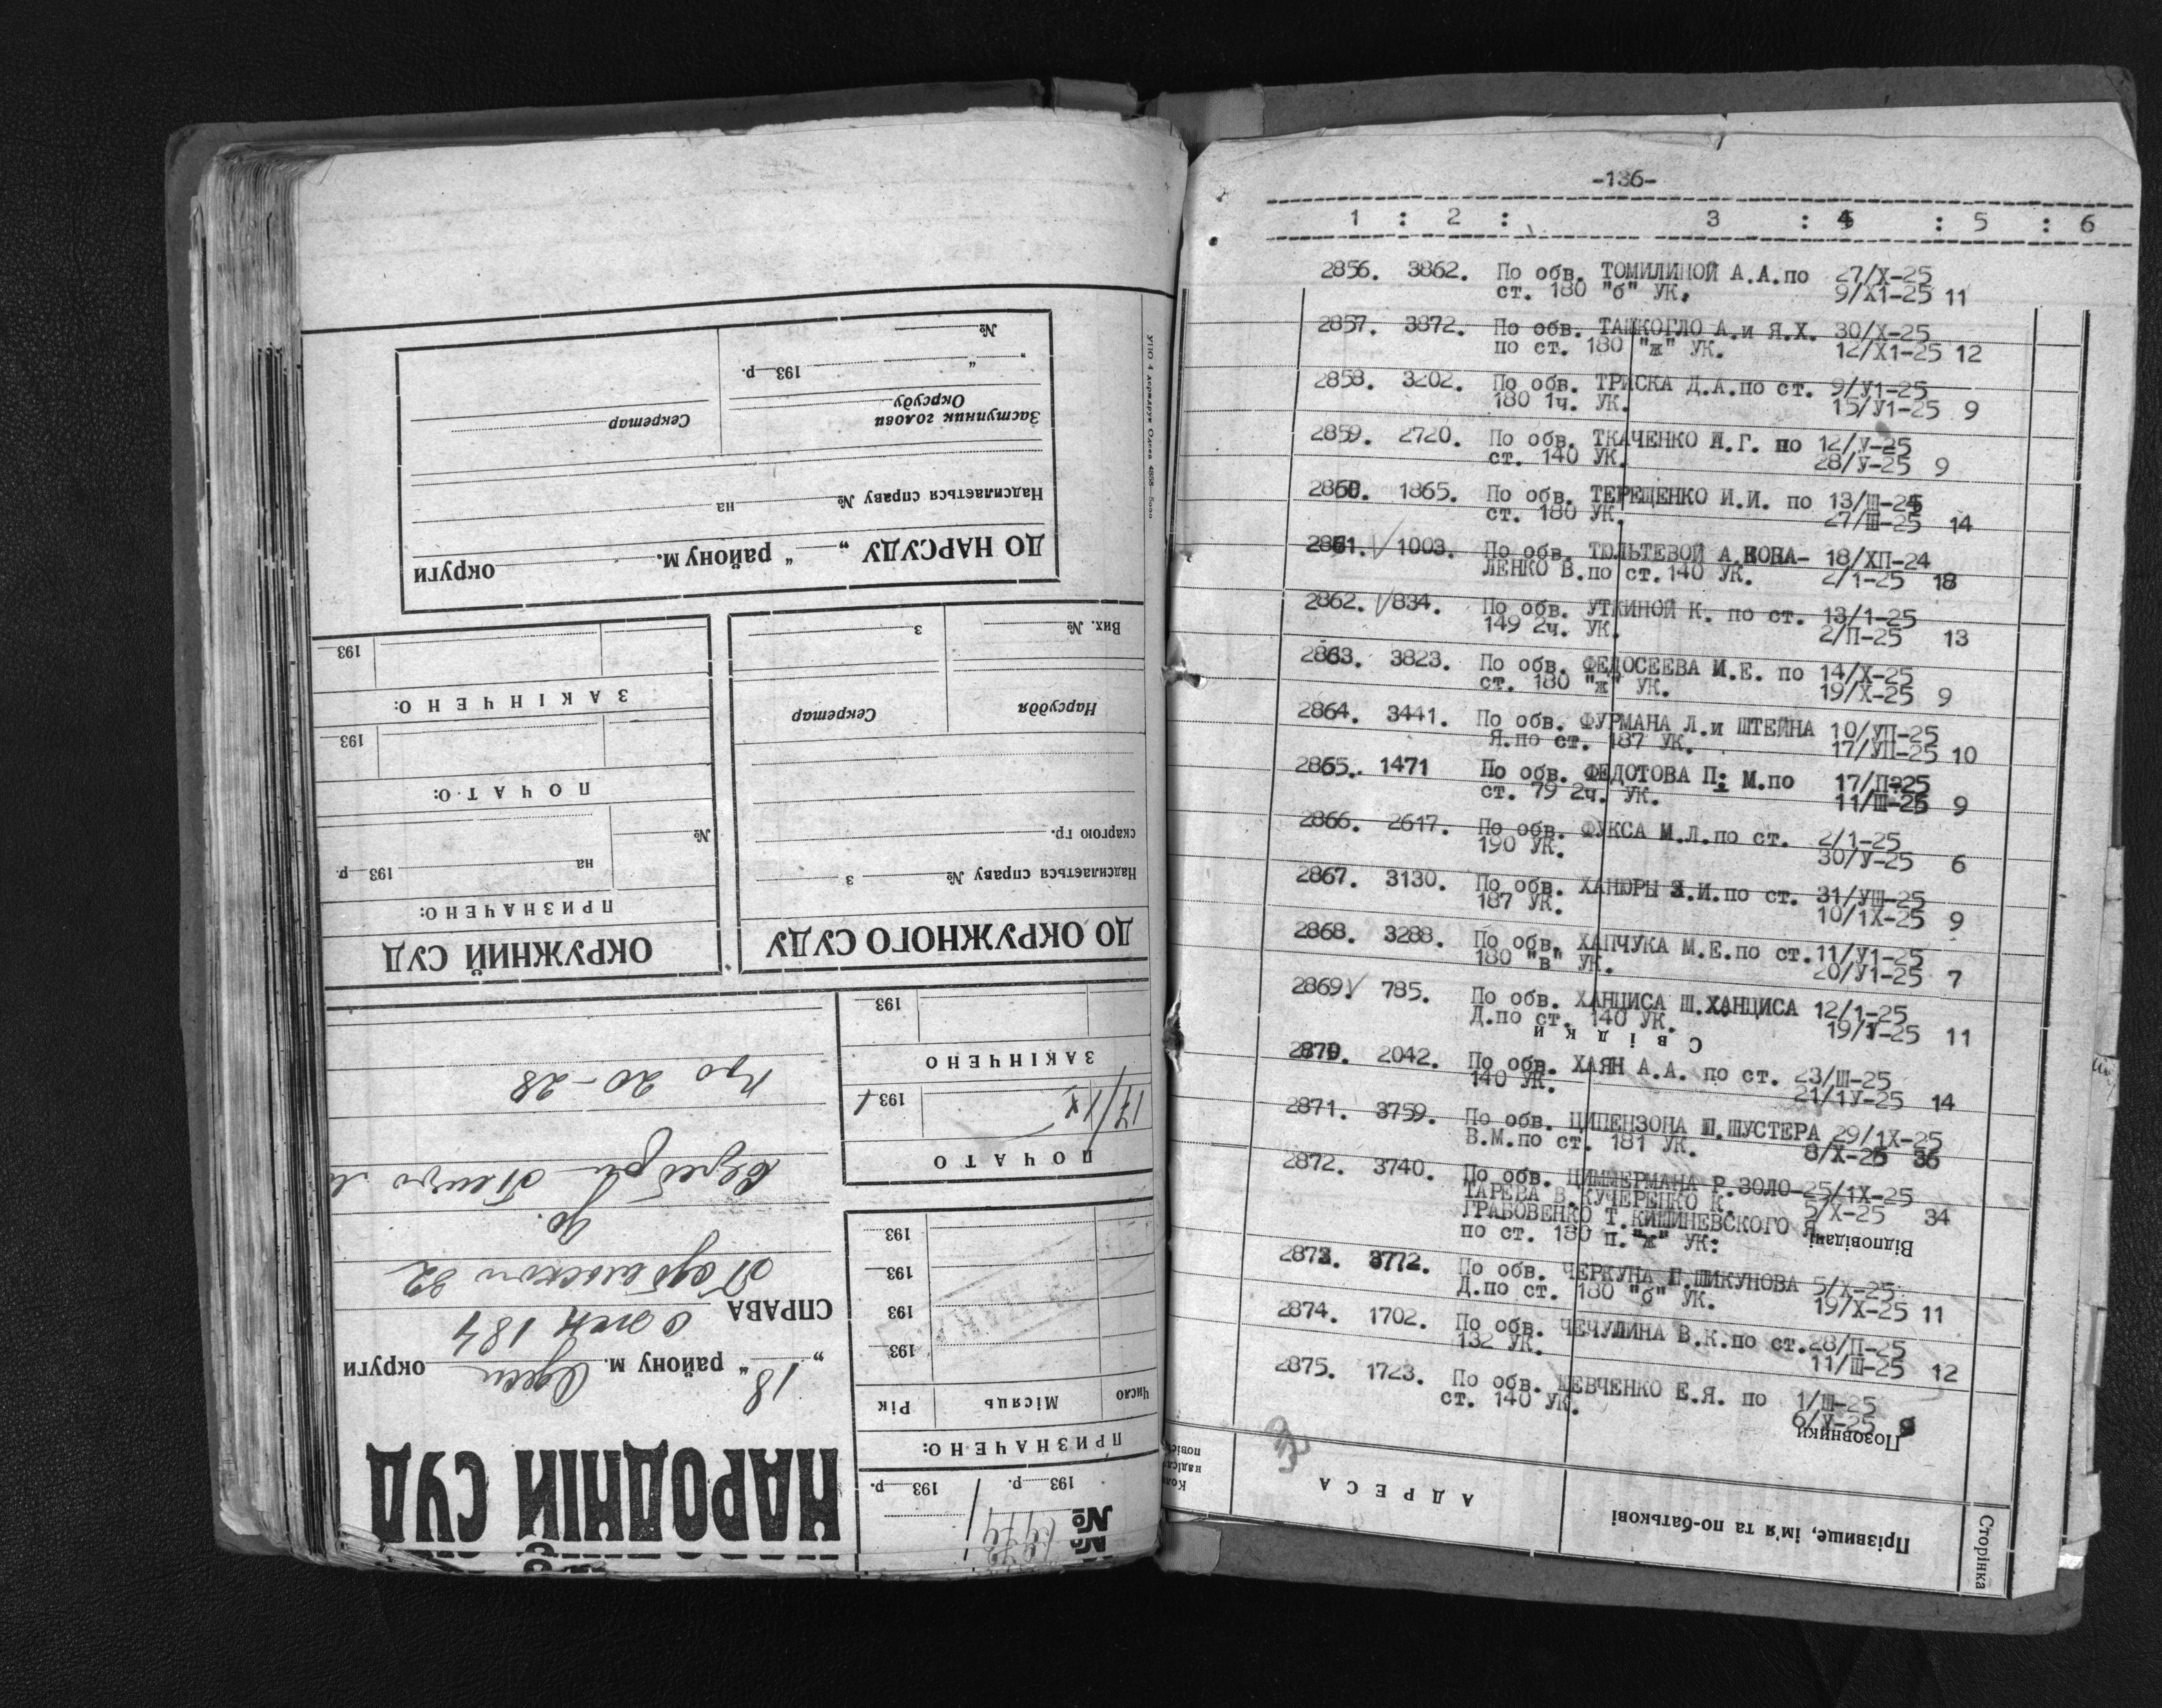 №
" " 193 р.
Заступник голови Окрсуду
Секретар
Надсилається справу № на
ДО НАРСУДУ „ " району м. округи
Вих. № з
Нарсуддя Секретар
скаргою гр.
Надсилається справу № з
ДО ОКРУЖНОГО СУДУ
193
ЗАКІНЧЕНО:
193
ПОЧАТО:
№ на 193 р.
ПРИЗНАЧЕНО:
ОКРУЖНИЙ СУД
193
ЗАКІНЧЕНО
17/IX 193
ПОЧАТО
193
193
193
193
Число Місяць Рік
ПРИЗНАЧЕНО:
193 р. 193 р.
№
НАРОДНІЙ СУД
„ 18 " району м. Одеси округи
СПРАВА
184
82
20-28
-136-
1 : 2 : 3 : 4 : 5 : 6
2856. 3862. По обв. ТОМИЛИНОЙ А.А.по 27/X-25
ст. 180 "б" УК. 9/X1-25 11
2857. 3872. По обв. ТАШКОГЛО А.и Я.Х. 30/X-25
по ст. 180 "ж" УК. 12/X1-25 12
2858. 3202. По обв. ТРИСКА Д.А.по ст. 9/У1-25
180 1ч. УК. 15/У1-25 9
2859. 2720. По обв. ТКАЧЕНКО И.Г. по 12/У-25
ст. 140 УК. 28/У-25 9
2860. 1865. По обв. ТЕРЕЩЕНКО И.И. по 13/Ш-24
ст. 180 УК. 27/Ш-25 14
2861. 1003. По обв. ТЮЛЬТЕВОЙ А.КОВА- 18/ХП-24
ЛЕНКО В.по ст.140 УК. 2/1-25 18
2862. 834. По обв. УТКИНОЙ К. по ст. 13/1-25
149 2ч. УК. 2/П-25 13
2863. 3823. По обв. ФЕДОСЕЕВА И.Е. по 14/X-25
ст. 180 "ж" УК. 19/X-25 9
2864. 3441. По обв. ФУРМАНА Л.и ШТЕЙНА 10/УП-25
Я.по ст. 187 УК. 17/УП-25 10
2865. 1471 По обв. ФЕДОТОВА П. М.по 17/П-25
ст. 79 2ч. УК. 11/Ш-25 9
2866. 2617. По обв. ФУКСА М.Л.по ст. 2/1-25
190 УК. 30/У-25 6
2867. 3130. По обв. ХАНЮРЫ З.И.по ст. 31/УШ-25
187 УК. 10/1Х-25 9
2868. 3288. По обв. ХАПЧУКА М.Е.по ст.11/У1-25
180 "в" УК. 20/У1-25 7
2869. 785. По обв. ХАНЦИСА Ш.ХАНЦИСА 12/1-25
Д.по ст. 140 УК. 19/1-25 11
Свідки
2870. 2042. По обв. ХАЯН А.А. по ст. 23/Ш-25
140 УК. 21/1У-25 14
2871. 3759. По обв. ЦИПЕНЗОНА Ш.ШУСТЕРА 29/1Х-25
В.М.по ст. 181 УК. 8/X-25 36
2872. 3740. По обв. ЦИММЕРМАНА Р.ЗОЛО-25/1Х-25
ТАРЕВА В.КУЧЕРЕНКО К. 5/X-25 34
ГРАБОВЕНКО Т.КИШИНЕВСКОГО Я.
по ст. 180 п."ж" УК:
Відповідачі
2873. 3772. По обв. ЧЕРКУНА П.ШИКУНОВА 5/X-25
Д.по ст. 180 "б" УК. 19/X-25 11
2874. 1702. По обв. ЧЕЧУЛИНА В.К.по ст.28/П-25
132 УК. 11/Ш-25 12
2875. 1723. По обв. ШЕВЧЕНКО Е.Я. по 1/Ш-25
ст. 140 УК. 6/У-25 9
Позовники
АДРЕСА
Прізвище, ім'я та по-батькові
Сторінка